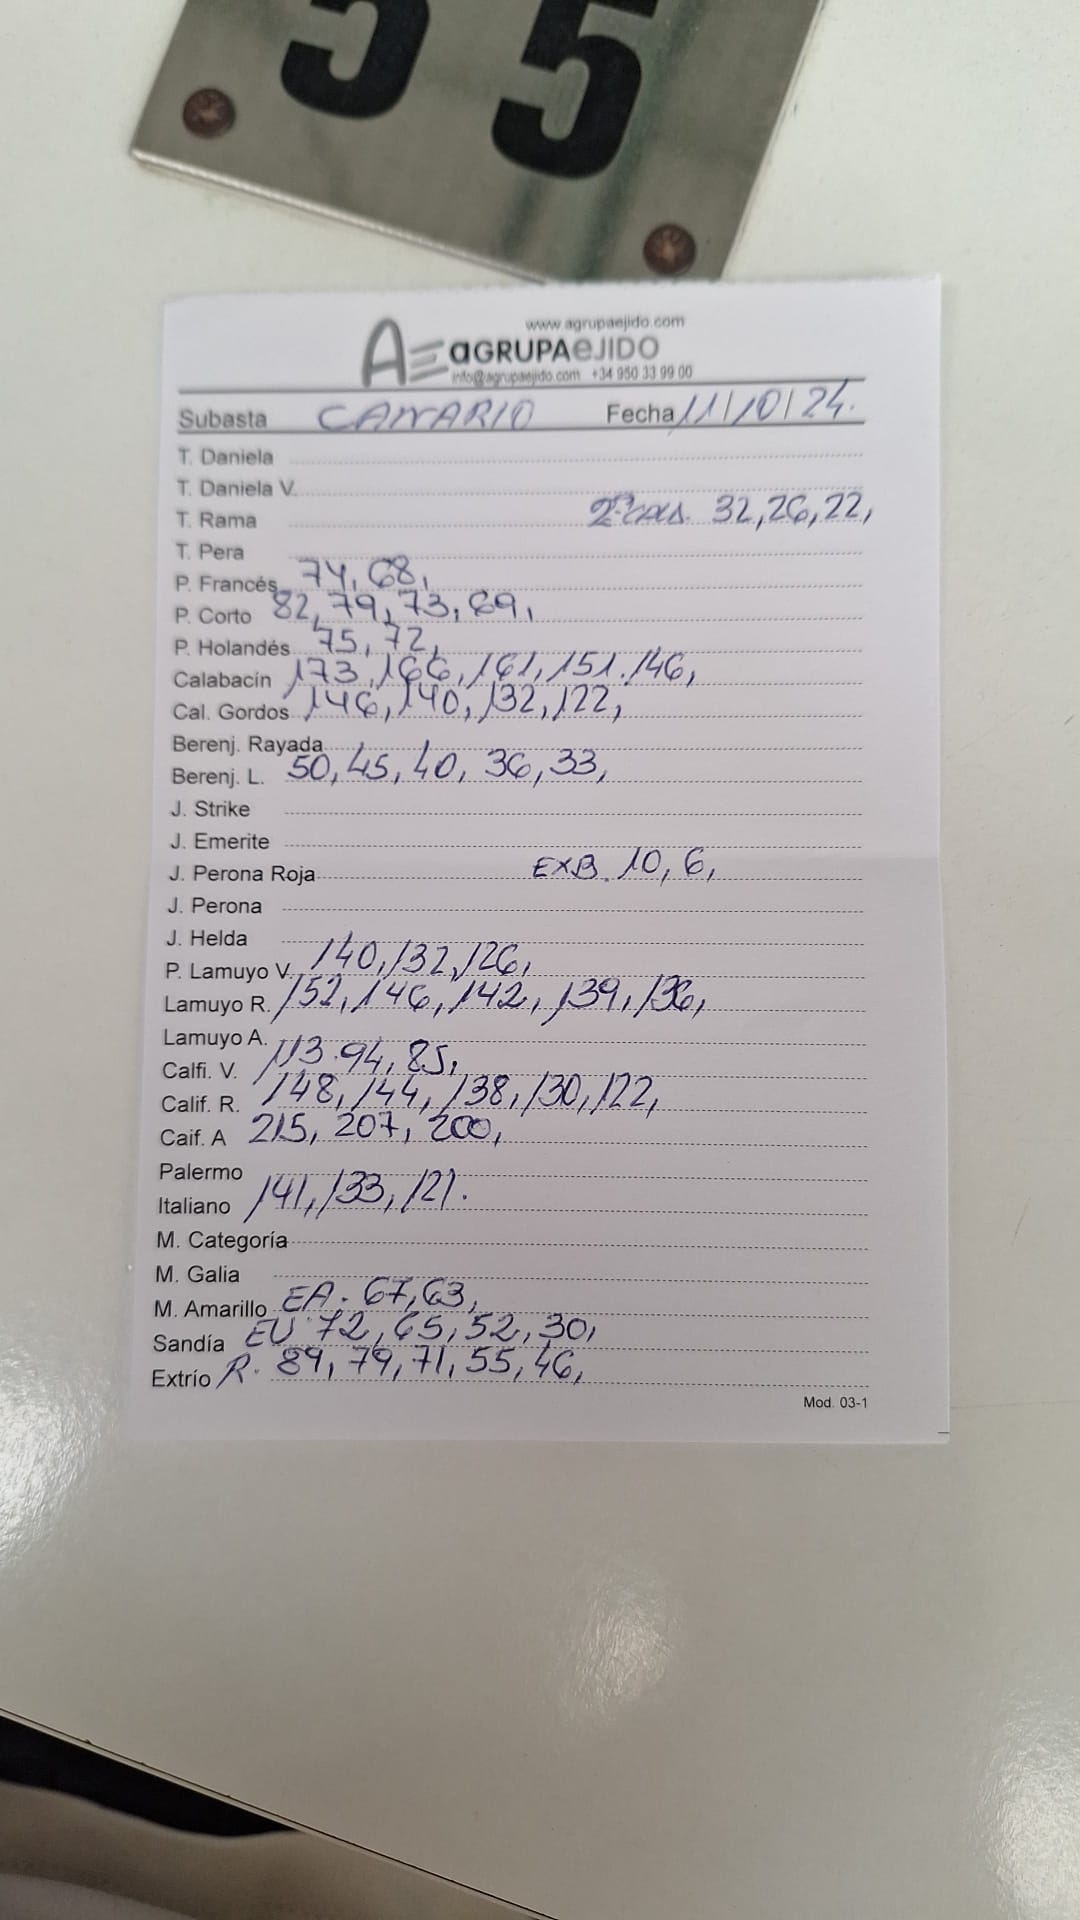 55
www.agrupaejido.com
AE aGRUPAeJIDO
info@agrupaejido.com +34 950 33 99 00
Subasta CANARIO Fecha 11/10/24.
T. Daniela
T. Daniela V.
T. Rama 2ª CAL. 32, 26, 22,
T. Pera
P. Francés 74, 68,
P. Corto 82, 79, 73, 69,
P. Holandés 75, 72,
Calabacín 173, 166, 161, 151. 146,
Cal. Gordos 146, 140, 132, 122,
Berenj. Rayada
Berenj. L. 50, 45, 40, 36, 33,
J. Strike
J. Emerite
J. Perona Roja EXB. 10, 6,
J. Perona
J. Helda
P. Lamuyo V. 140, 132, 126,
Lamuyo R. 152, 146, 142, 139, 136,
Lamuyo A.
Calfi. V. 113. 94, 85,
Calif. R. 148, 144, 138, 130, 122,
Caif. A 215, 207, 200,
Palermo
Italiano 141, 133, 121.
M. Categoría
M. Galia
M. Amarillo EA. 67, 63,
Sandía EU 72, 65, 52, 30,
Extrío R. 89, 79, 71, 55, 46,
Mod. 03-1